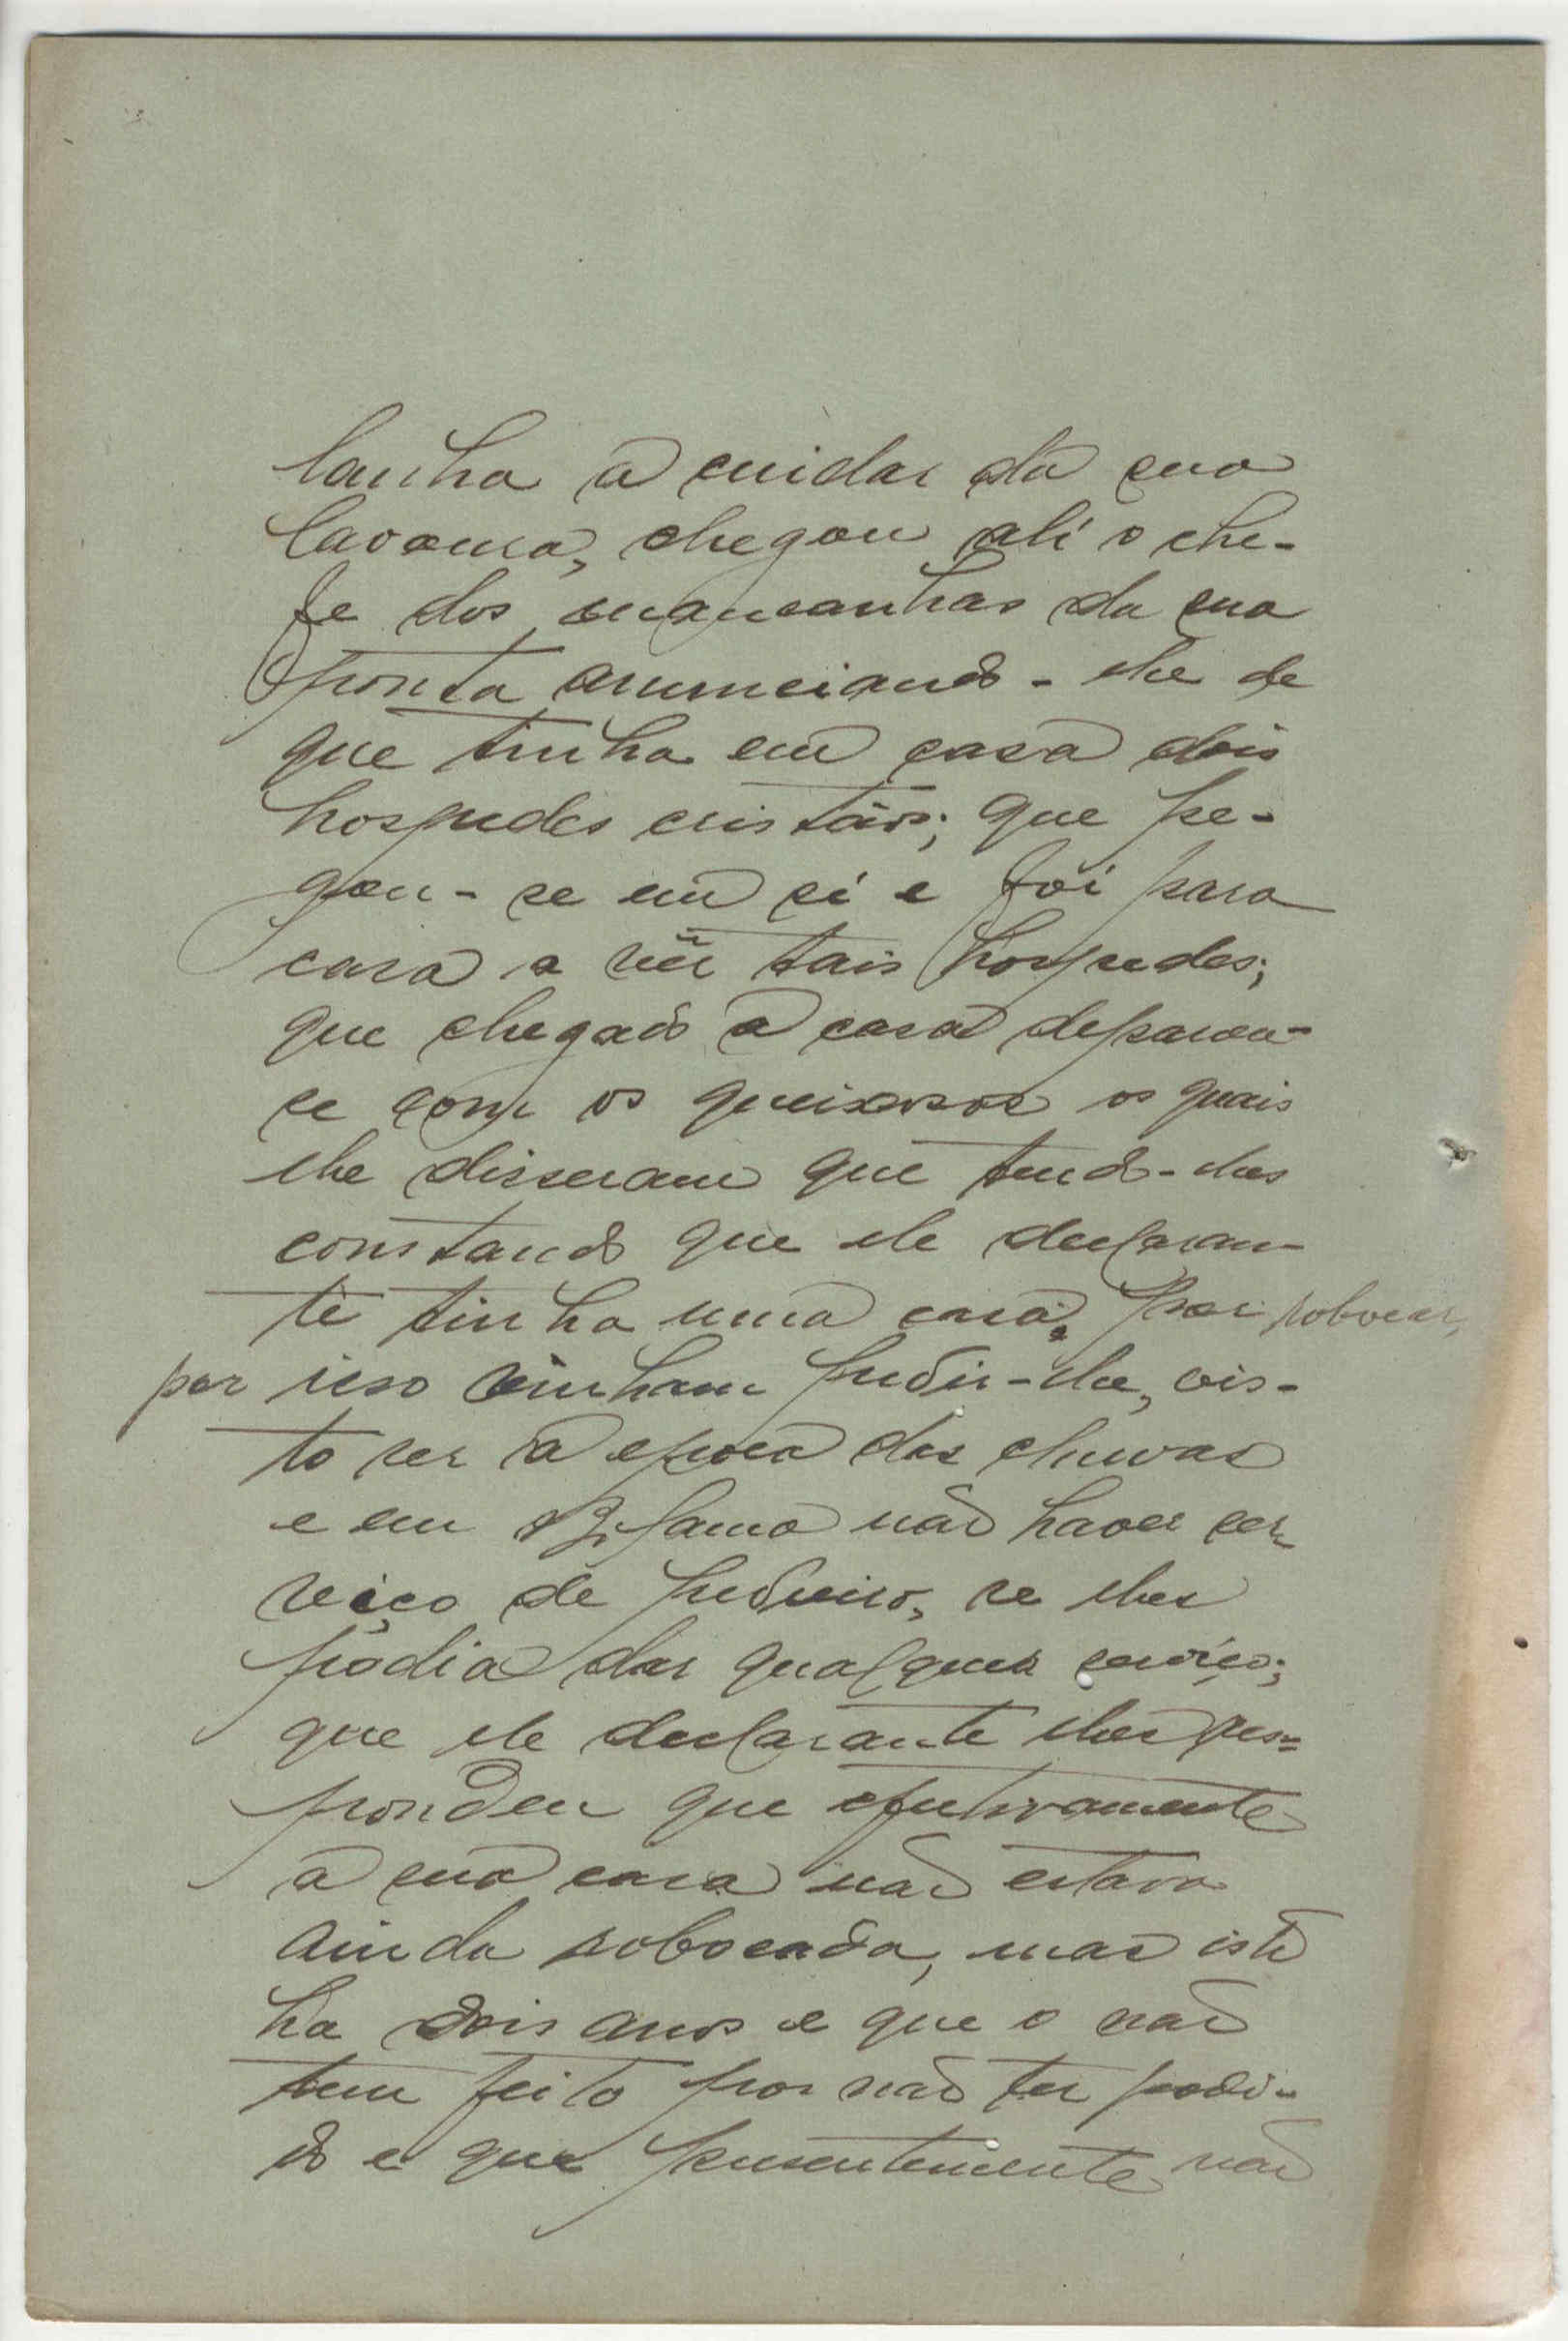 lanha a cuidar da sua
lavoura, chegou ali o che-
fe dos mancanhas da sua
ponta anunciando-lhe de
que tinha em casa dois
hospedes cristãos; que pe-
gou-se em si e foi para
casa a vêr tais hospedes;
que chegado a casa deparou-
se com os queixosos os quais
lhe disseram que tendo-lhes
constando que ele declaran-
te tinha uma casa por rebocar,
por isso vinham pedir-lhe, vis-
to ser a epoca das chuvas
e em Bolama não haver ser-
viço de pedreiro, se lhes
podia dar qualquer serviço;
que ele declarante lhes res-
pondeu que efectivamente
a sua casa não estava
ainda rebocada, mas isto
ha dois anos e que o não
tem feito por não ter podi-
do e que presentemente não